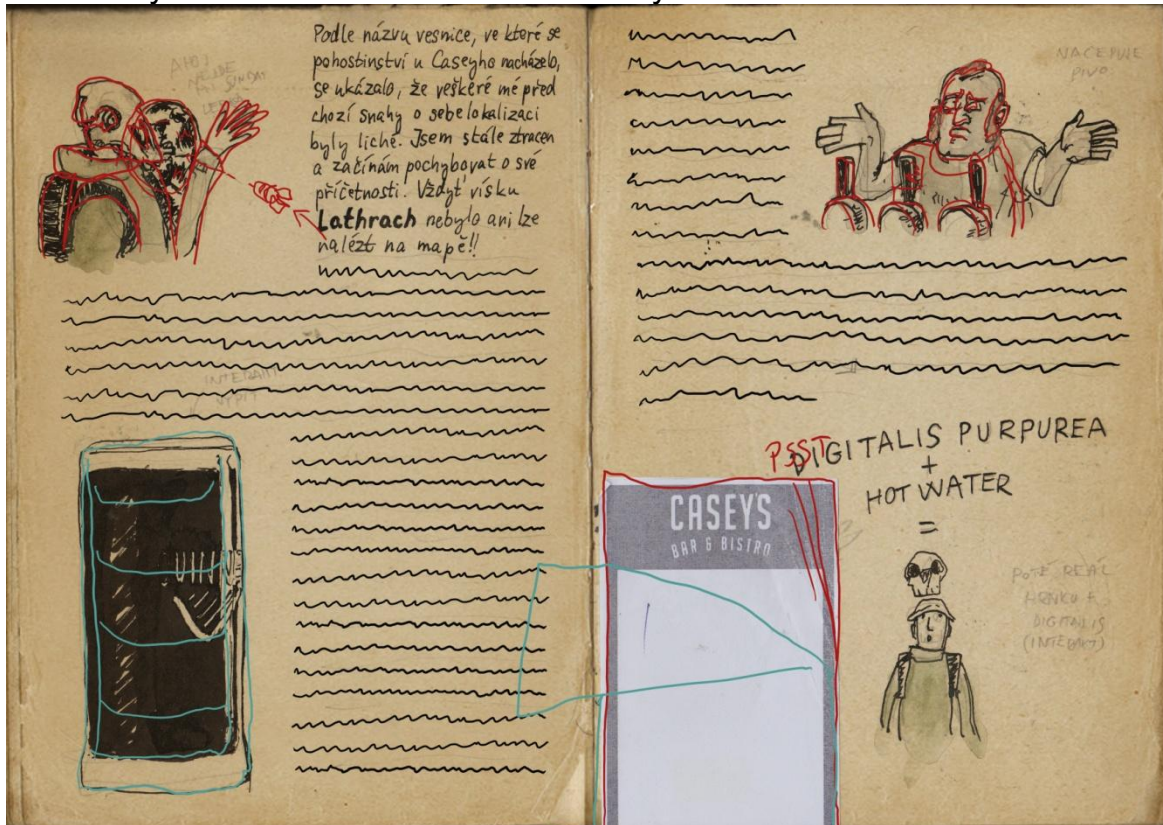 Podle názvu vesnice, ve které se
pohostinství u Caseyho nacházelo,
se ukázalo, že veškeré mé před
chozí snahy o sebelokalizaci
byly liché. Jsem stále ztracen
a začínám pochybovat o své
příčetnosti! Vždyť vísku
Lathrach nebylo ani lze
nalézt na mapě!!
INTERAKT
VYPIT
NACEPUJE
PIVO
PSST
DIGITALIS PURPUREA
+
HOT WATER
=
CASEY'S
BAR & BISTRO
POTÉ REAL
HRNKO
DIGITALIS
(INTERAKT)